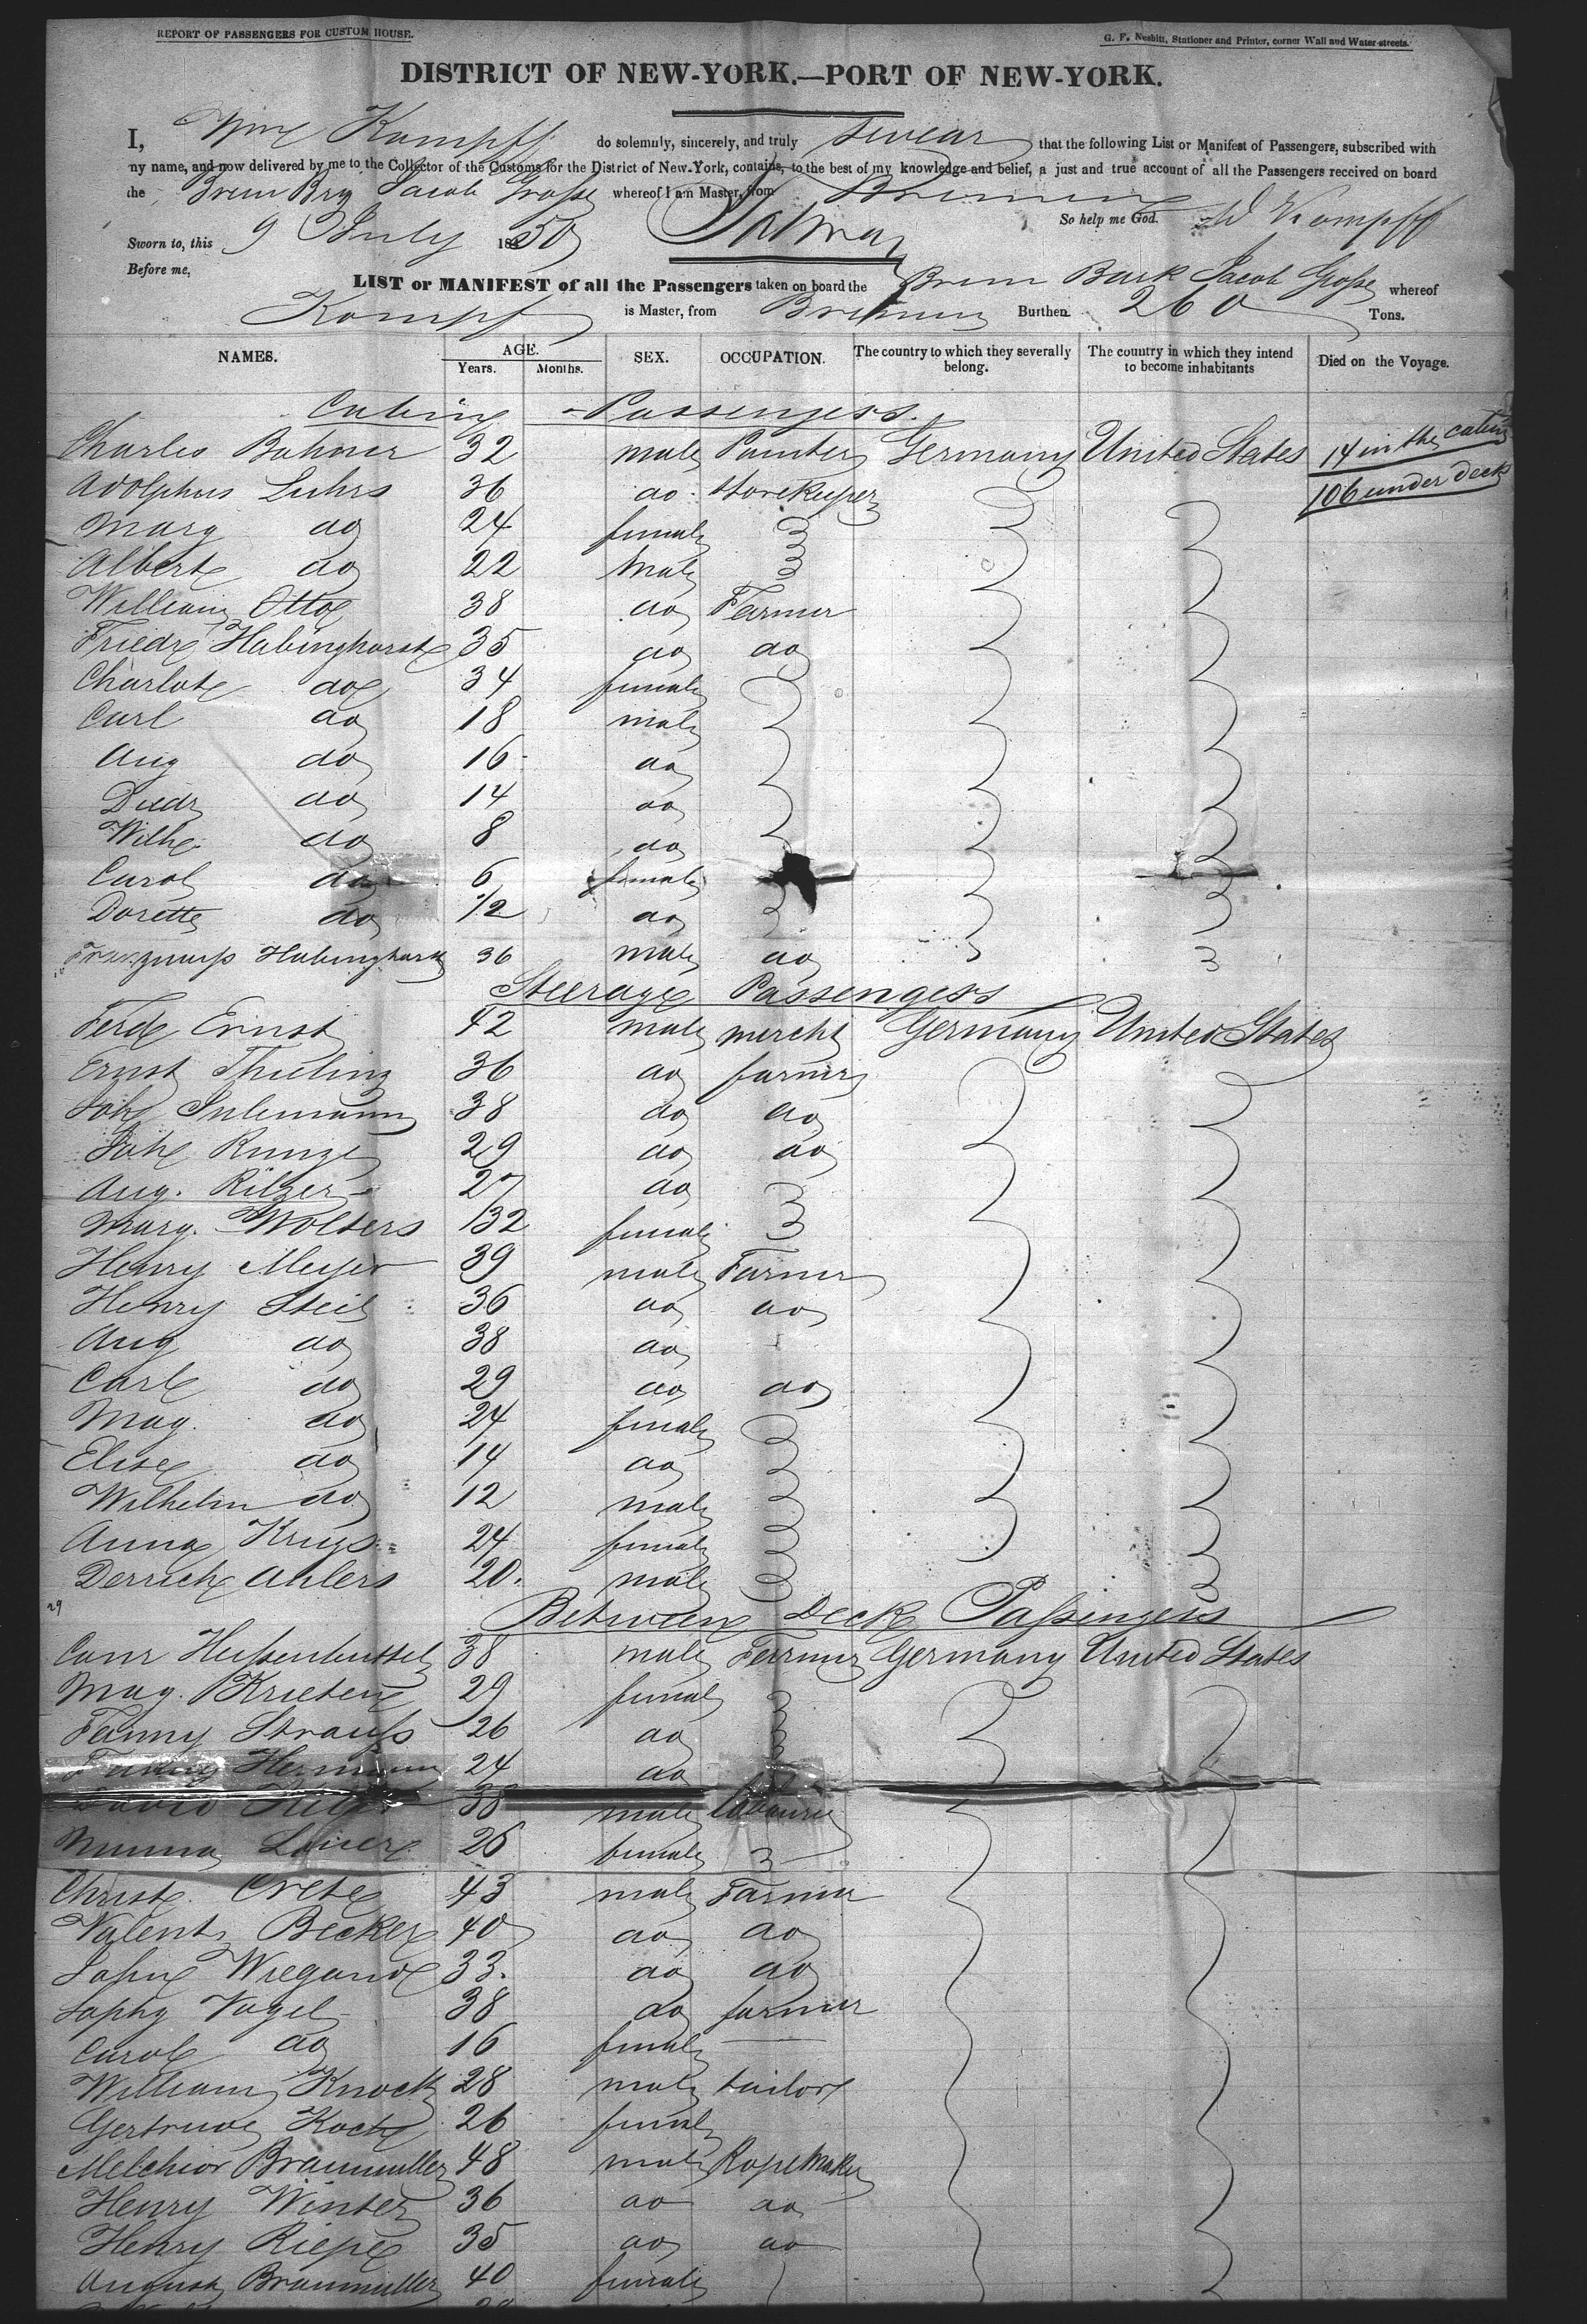 REPORT OF PASSENGERS FOR CUSTOM HOUSE.
G. F. Nesbitt, Stationer and Printer, corner Wall and Water-streets.
DISTRICT OF NEW-YORK.—PORT OF NEW-YORK.
I, Wm Kampff do solemnly, sincerely, and truly swear that the following List or Manifest of Passengers, subscribed with
my name, and now delivered by me to the Collector of the Customs for the District of New-York, contains, to the best of my knowledge and belief, a just and true account of all the Passengers received on board
the Brem Brg Jacob Grosse whereof I am Master, from Bremen
So help me God. W Kampff
Sworn to, this 9 July 1850
Before me,
LIST or MANIFEST of all the Passengers taken on board the Brem Bark Jacob Grosse whereof
Kampff is Master, from Bremen Burthen 260 Tons.
NAMES. AGE. Years. Months. SEX. OCCUPATION. The country to which they severally belong. The country in which they intend to become inhabitants Died on the Voyage.
Cabin Passengers.
Charles Bohmer 32 male Painter Germany United States 14 in the cabin
Adolphus Luhrs 36 do storekeeper 106 under deck
Marg do 24 female
Albert do 22 Male
William Otto 38 do Farmer
Friedr Habinghorst 35 do do
Charlote do 34 female
Carl do 18 male
Aug do 16 do
Diedr do 14 do
Wilh do 8 do
Carol do 6 female
Dorette do 1/2 do
Habinghorst 36 male do
Steerage Passengers
Ferd Ernst 42 male mercht Germany United States
Ernst Thieling 36 do farmer
Joh 38 do do
Joh Runge 29 do do
Aug. 27 do
Marg. Wolters 32 female
Henry Meyer 39 male Farmer
Henry Steil 36 do do
Aug do 38 do
Carl do 29 do do
Mag. do 24 female
Elise do 14 do
Wilhelm do 12 male
Anna Krugs 24 female
Derrick Ahlers 20. male
29 Between Deck Passengers
38 male Farmer Germany United States
Mag. Krieten 29 female
Fanny Strauss 26 do
Fanny Hermann 24 do
David 38 male labourer
26 female
Christ. Crete 43 male Farmer
Valent Becker 40 do do
Wiegand 33. do do
Vogel 38 do farmer
Carol do 16 female
William Knock 28 male tailor
Gertrude Koch 26 female
Melchior Braumuller 48 male RopeMaker
Henry Winter 36 do do
Henry Riepe 35 do do
August Braumuller 40 female